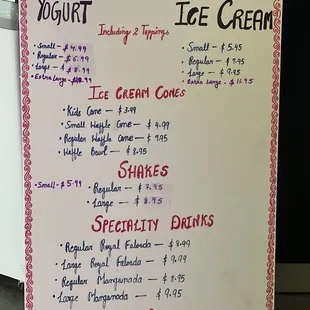 YOGURT
ICE CREAM
Including 2 Toppings
• Small - $4.99
• Regular - $6.99
• Large - $8.99
• Extra Large -
• Small - $5.95
• Regular - $7.95
• Large - $9.95
Extra Large - $11.95
ICE CREAM CONES
• Kids Cone - $3.99
• Small Waffle Cone - $4.99
• Regular Waffle Cone - $7.95
• Waffle Bowl - $8.95
SHAKES
• Small - $5.99
• Regular - $7.95
• Large - $8.95
SPECIALITY DRINKS
• Regular Royal Falooda - $8.99
• Large Royal Falooda - $9.99
• Regular Mangonada - $8.95
• Large Mangonada - $9.95